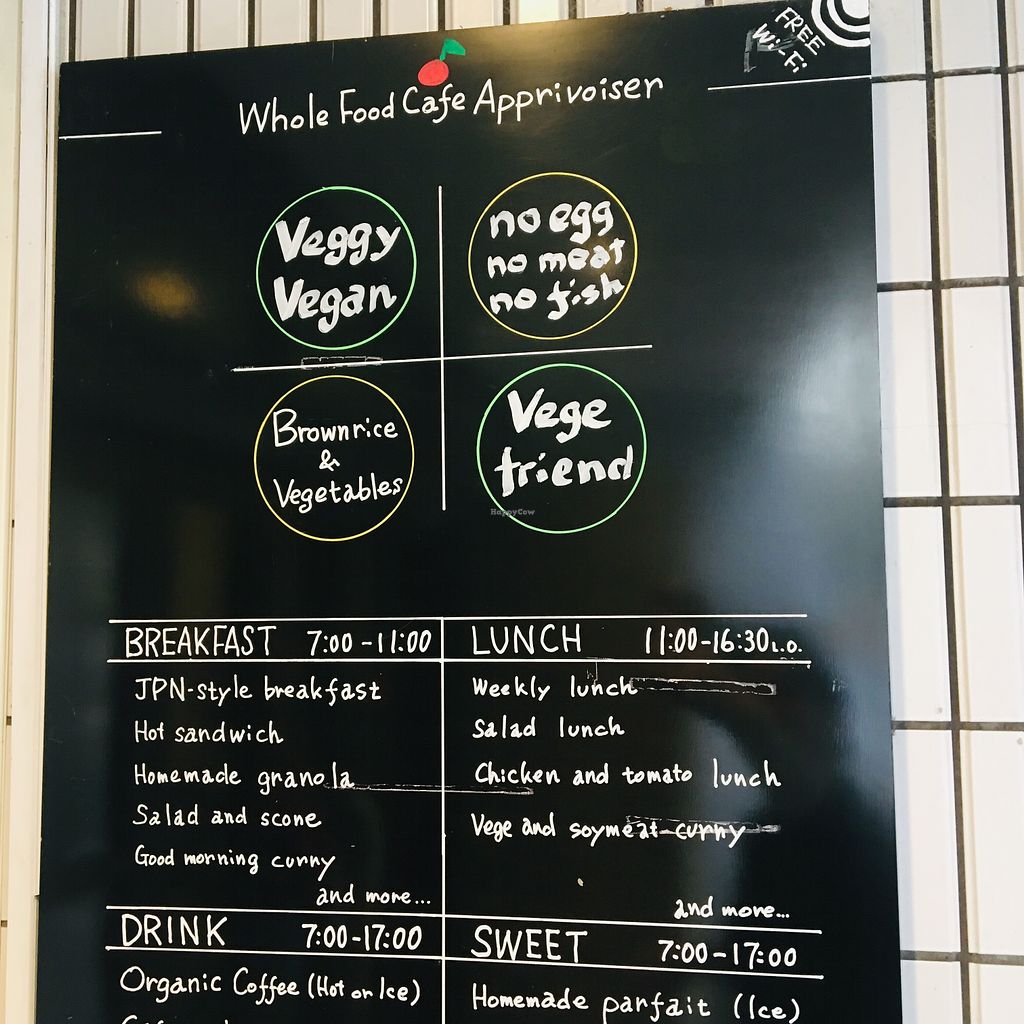 FREE
Wi-Fi
Whole Food Cafe Apprivoiser
Veggy
Vegan
no egg
no meat
no fish
Brownrice
&
Vegetables
Vege
friend
HappyCow
BREAKFAST 7:00-11:00
JPN-style breakfast
Hot sandwich
Homemade granola
Salad and scone
Good morning curry
and more...
LUNCH 11:00-16:30 L.O.
Weekly lunch
Salad lunch
Chicken and tomato lunch
Vege and soymeat curry
and more...
DRINK 7:00-17:00
Organic Coffee (Hot or Ice)
SWEET 7:00-17:00
Homemade parfait (Ice)